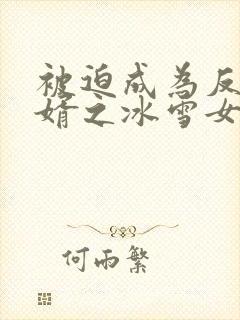 被迫成为反
婿之冰雪女
何雨繁